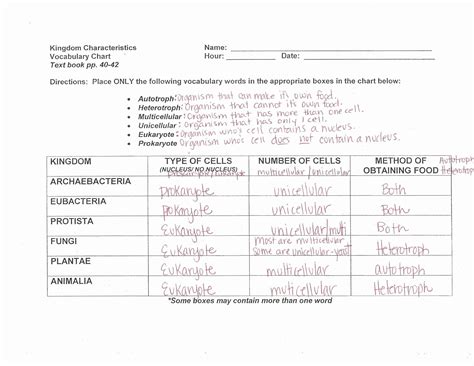 Kingdom Characteristics Name:
Vocabulary Chart Hour: Date:
Text book pp. 40-42
Directions: Place ONLY the following vocabulary words in the appropriate boxes in the chart below:
• Autotroph: Organism that can make it's own food.
• Heterotroph: Organism that cannot it's own food.
• Multicellular: Organism that has more than one cell.
• Unicellular: Organism that has only 1 cell.
• Eukaryote: Organism who's cell contains a nucleus.
• Prokaryote Organism who's cell does not contain a nucleus.
KINGDOM TYPE OF CELLS NUMBER OF CELLS METHOD OF Autotroph
(NUCLEUS/ NO NUCLEUS) OBTAINING FOOD Heterotroph
prokaryote/eukaryote multicellular /unicellular
ARCHAEBACTERIA Prokaryote unicellular Both
EUBACTERIA Prokaryote unicellular Both
PROTISTA Eukaryote unicellular/multi Both
FUNGI Eukaryote most are multicellular Heterotroph
some are unicellular-yeast
PLANTAE Eukaryote multicellular autotroph
ANIMALIA Eukaryote multicellular Heterotroph
*Some boxes may contain more than one word